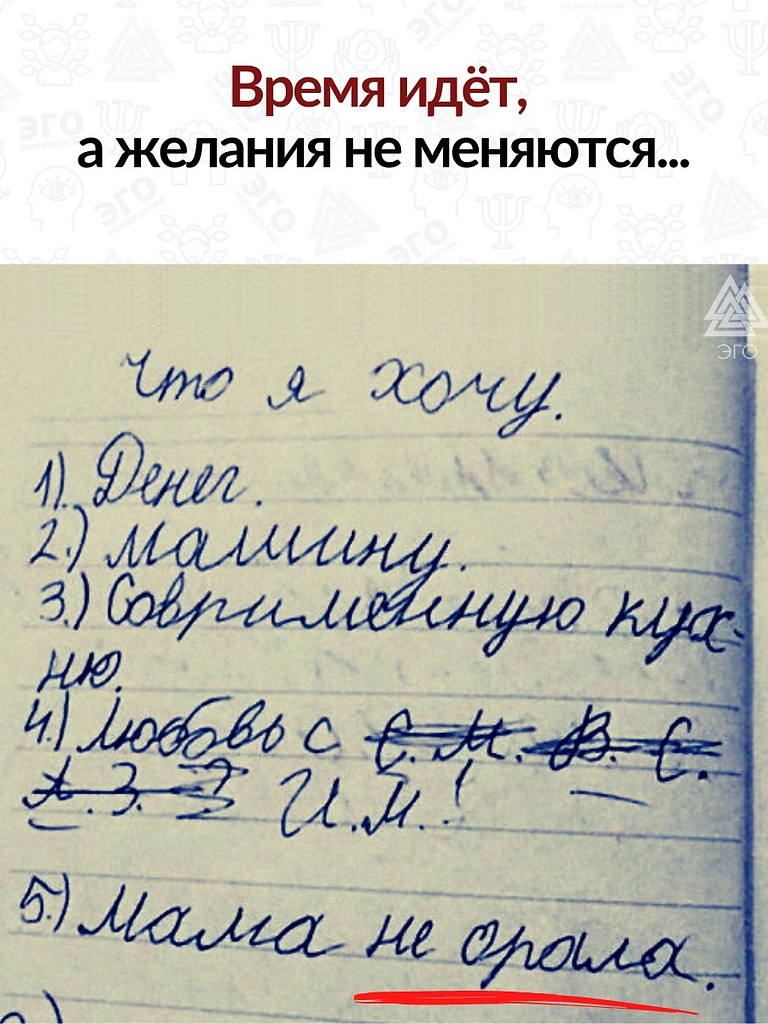 Время идёт,
а желания не меняются...
ЭГО
Что я хочу.
1). Денег.
2.) Машину.
3.) Совримённую кух-
ню.
4.) Любовь с С. М. В. С.
А. З. И.М.!
5.) Мама не орала.